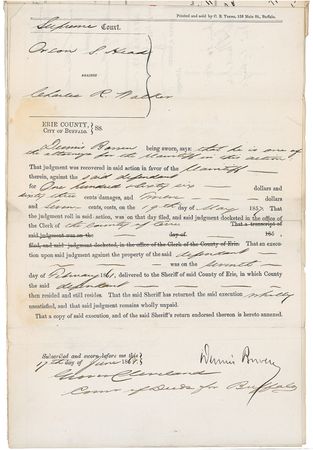 Printed and sold by C. E. Young, 156 Main St., Buffalo.
Supreme Court.
Orson S Head
AGAINST
Charles R. Walker
ERIE COUNTY,
CITY OF BUFFALO. SS.
Dennis Bowen being sworn, says: that he is one of
the attorneys for the Plaintiff in this action
That judgment was recovered in said action in favor of the plaintiff
therein, against the said defendant
for One hundred sixty six dollars and
sixty three cents damages, and dollars
and seven cents costs, on the 19th day of May 185 That
the judgment roll in said action, was on that day filed, and said judgment docketed in the office of
the Clerk of the County of Erie That a transcript of
said judgment was on the day of 185
filed, and said judgment docketed, in the office of the Clerk of the County of Erie: That an execu-
tion upon said judgment against the property of the said defendant
was on the
day of February delivered to the Sheriff of said County of Erie, in which County
the said defendant
then resided and still resides That the said Sheriff has returned the said execution wholly
unsatisfied, and that said judgment remains wholly unpaid.
That a copy of said execution, and of the said Sheriff's return endorsed thereon is hereto annexed.
Subscribed and sworn before me this
17th day of June 186
Dennis Bowen
Grover Cleveland
Comr of Deeds for Buffalo